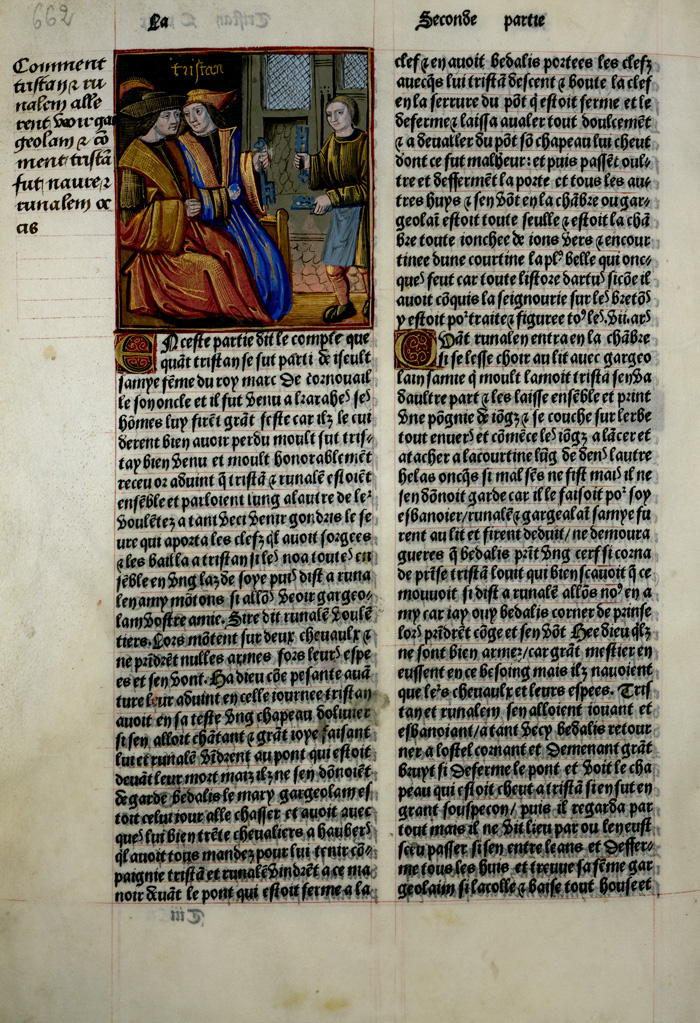 662
La
Seconde partie
Comment
tristan ⁊ ru
nalem alle
rent veoir gar
geolain ⁊ cō
ment tristā
fut naure ⁊
runalem oc
cis
tristan
EN ceste partie dit le compte que
quāt tristan se fut parti de iseult
samye fēme du roy marc De cornouail
le son oncle et il fut venu a
hōmes luy firēt grāt feste car ilz le cui
derent bien auoir perdu moult fut tris⸗
tan bien venu et moult honorablemēt
receu or aduint q̄ tristā ⁊ runalē estoiēt
ensēble et parloient lung alautre de le
voulētez a tant veci venir gondris le fe
ure qui aporta les clefz ql auoit forgees
⁊ les bailla a tristan si les noa toutes en
sēble en vng laz de soye puis dist a runa
len amy mōtons si allōs veoir gargeo⸗
lain vostre amie. Sire dit runalē voulē
tiers. Lors mōtent sur deux cheuaulx ⁊
ne prīdrēt nulles armes fors leurs espe
es et sen vont. Ha dieu cōe pesante auā
ture leur aduint en celle iournee tristan
auoit en sa teste vng chapeau doliuier
si sen alloit chātant ⁊ grāt ioye faisant
lui et runalē vīdrent au pont qui estoit
deuāt leur mort mais ilz ne sen dōnoiēt
de garde bedalis le mary gargeolam es
toit celui iour alle chasser et auoit auec
ques lui bien trēte cheualiers a haubers
ql auoit tous mandez pour lui tenir cō⸗
paignie tristā et runalē vindrēt a ce ma
noir deuāt le pont qui estoit ferme a la
clef ⁊ en auoit bedalis portees les clefz
auecqs lui tristā descent ⁊ boute la clef
en la serrure du pōt q̄ estoit ferme et le
deferme ⁊ laissa aualer tout doulcement
⁊ a deualler du pōt sō chapeau lui cheut
dont ce fut malheur: et puis passēt oul⸗
tre et deffermēt la porte et tous les au⸗
tres huys ⁊ sen vōt en la chābre ou gar⸗
geolaī estoit toute seulle ⁊ estoit la chā
bre toute ionchee de ions vers ⁊ encour
tinee dune courtine la pl⁹ belle qui onc⸗
ques feut car toute listore dartus sicōe il
auoit cōquis la seignourie sur les bretōs
y estoit portraite ⁊ figuree
QUāt runalen entra en la chābre
il se lesse choir au lit auec gargeo
lain samie q̄ moult lamoit tristā sen va
daultre part ⁊ les laisse ensēble et print
vne pōgnie de iōgz ⁊ se couche sur lerbe
tout enuers et cōmēce les iōgz a lācer et
atacher a lacourtine lūg de dens lautre
helas oncqs si mal sēs ne fist mais il ne
sen dōnoit garde car il le faisoit por soy
esbanoier / runalē ⁊ gargealaī samye fu
rent au lit et firent deduit / ne demoura
gueres q̄ bedalis prīt vng cerf si corna
de prīse tristā louit qui bien scauoit q̄ ce
mouuoit si dist a runalē allōs no⁹ en a
my car iay ouy bedalis corner de prinse
lors prīdrēt cōge et sen vōt Hee dieu qlz
ne sont bien armez / car grāt mestier en
eussent en ce besoing mais ilz nauoient
que les cheuaulx et leurs espees. Tris
tan et runalem sen alloient iouant et
esbanoiant / a tant vecy bedalis retour
ner a lostel cornant et Demenant grāt
bruyt si Deferme le pont et voit le cha
peau qui estoit cheut a tristā si en fut en
grant souspecon / puis il regarda par
tout mais il ne vit lieu par ou len eust
sceu passer si sen entre leans et Deffer⸗
me tous les huis et treuue sa fēme gar
geolaim si lacolle ⁊ baise tout house et